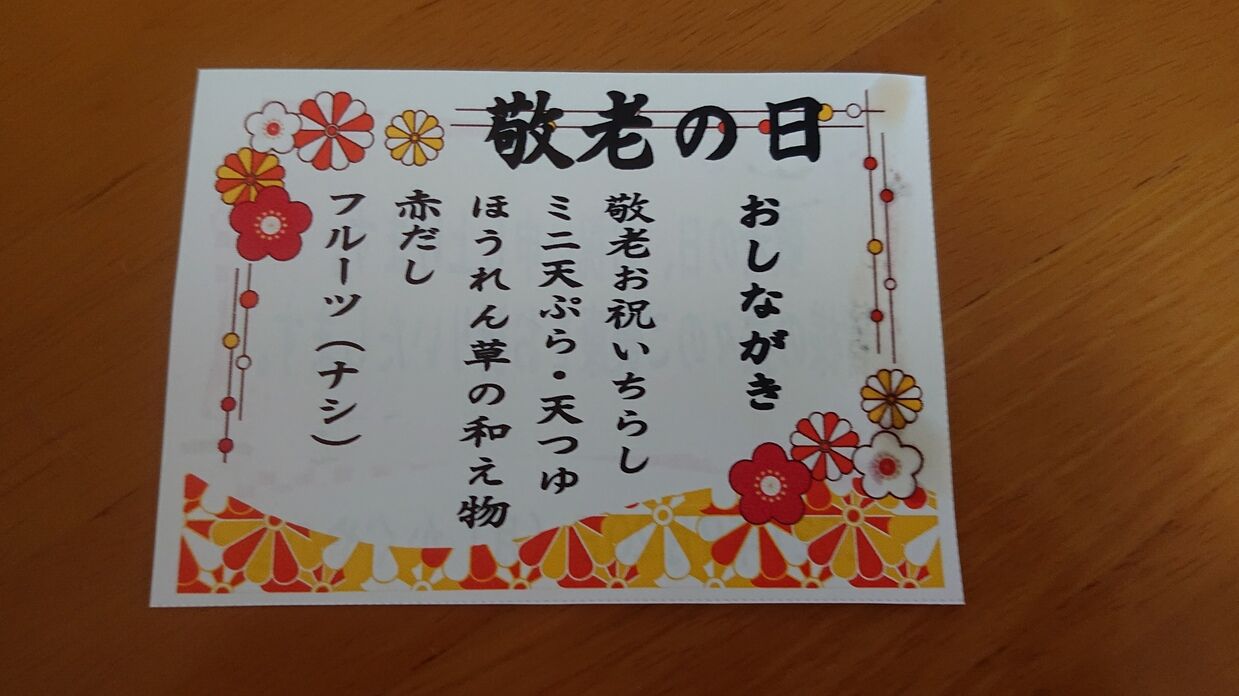 敬老の日
おしながき
敬老お祝いちらし
ミニ天ぷら・天つゆ
ほうれん草の和え物
赤だし
フルーツ（ナシ）